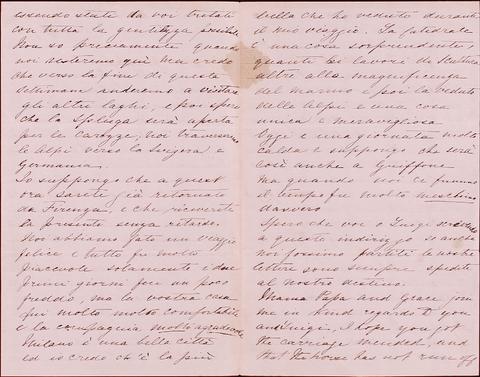 essendo state da voi trattati
con tutta la gentilezza possibile
Non so precisamente quando
noi resteremo qui ma credo
che verso la fine di questa
settimana anderemo a visitare
gli altri laghi, e poi spero
che la Spluga sarà aperta
per le carozze; noi traverseremo
le Alpi verso la Svizera e
Germania.
Io suppongo che a quest
ora sarete già retornato
da Firenza, e che riceverete
la presente senza ritardo.
Noi abbiamo fato un viaggio
felice e tutto fu molto
piacevole solamente i due
primi giorni fu un poco
freddo, ma la vostra casa
fui molto molto comfortabile
e la compagnia molto agreabile
Milano è una bella città
ed io credo ch'è la più
bella che ho veduto durante
il mio viaggio. La Catedrale
è una cosa sorprendente,
quante bei lavori da Scultura
oltre alla magnificenza
dal marmo e poi la veduta
delle Alpi e una cosa
unica e meravegliosa
Oggi e una giornata molto
calda e suppongo che sarà
così anche a
ma quando noi ce fummo
il tempo fu molto meschino
davvero
Spero che voi o Luigi scriverete
a questo indirizzo se anche
noi fossimo partite le nostre
lettere sono siempre spedite
al nostro destino.
Mama Papa and Grace join
me in kind regards to you
and Luigi, I hope you got
the carriage mended, and
that the horse has not run off